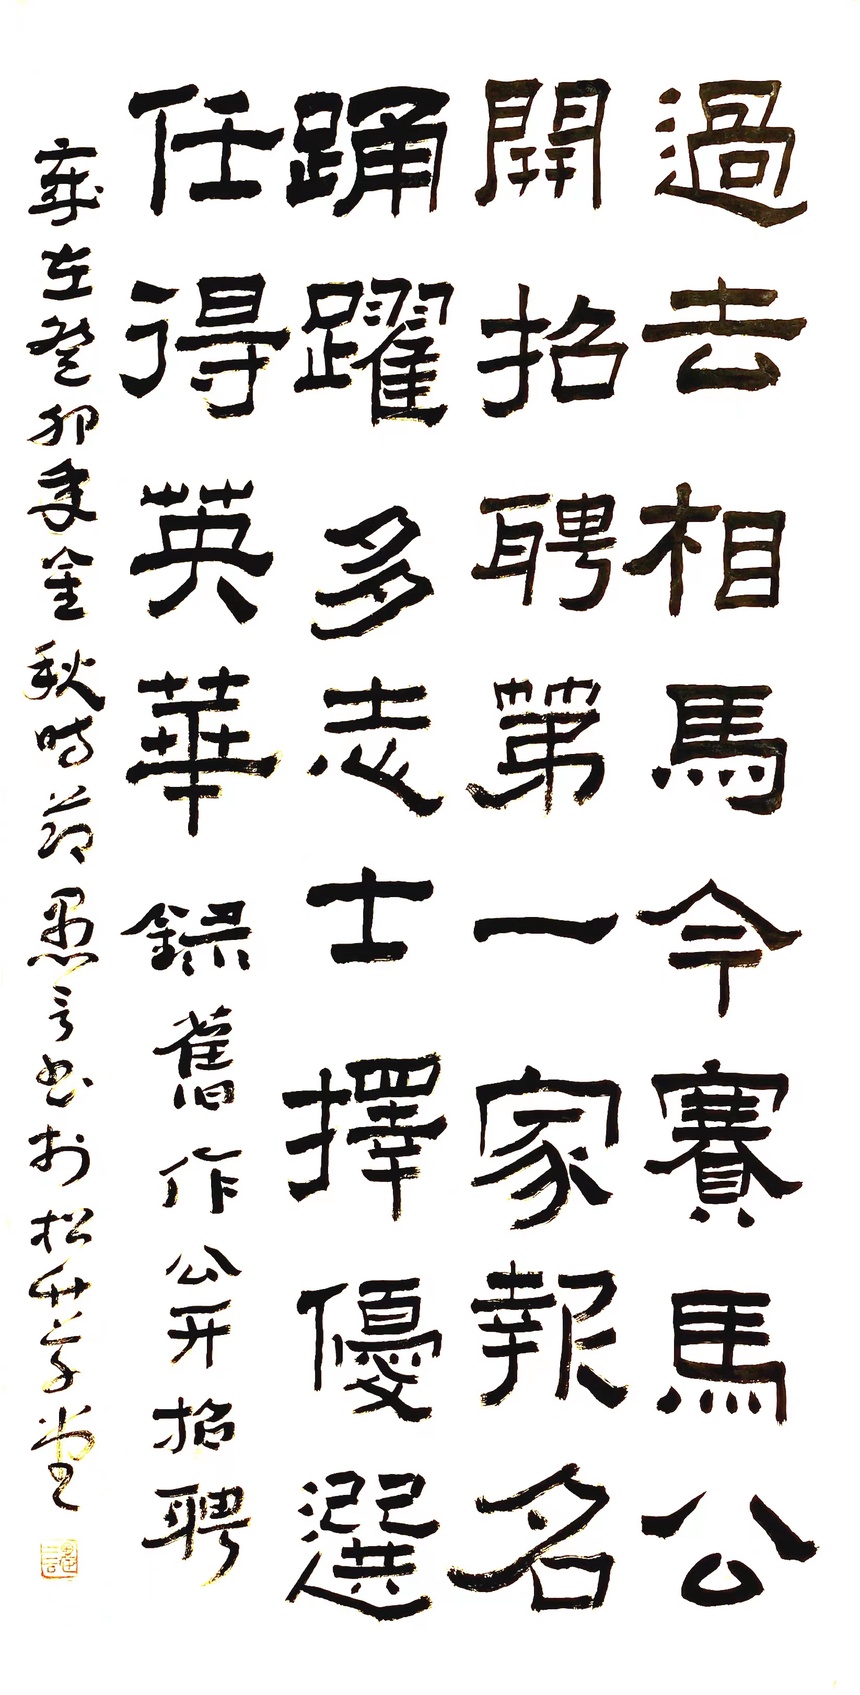 過去相馬今賽馬公
開招聘第一家報名
踊躍多志士擇優選
任得英華錄舊作公开招聘
歲在癸卯年金秋時節愚言书於松竹草堂